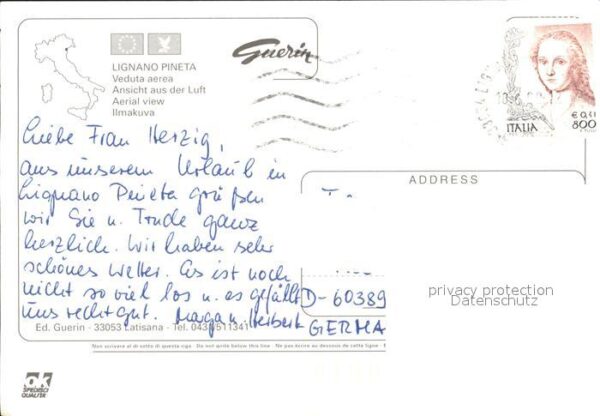 LIGNANO PINETA
Veduta aerea
Ansicht aus der Luft
Aerial view
Ilmakuva
Guerin
ITALIA
€ 0,41
800
Liebe Frau Herzig,
aus unserem Urlaub in
Lignano Pineta grüßen
wir Sie u. Trude ganz
herzlich. Wir haben sehr
schönes Wetter. Es ist noch
nicht so viel los u. es gefällt
uns recht gut. Marga u. Herbert
ADDRESS
D-60389
GERMA
privacy protection
Datenschutz
Ed. Guerin - 33053 Latisana - Tel. 0431/511341
Non scrivere al di sotto di questa riga - Do not write below this line - Ne pas écrire au dessous de cette ligne -
ok
SPEDISCI
QUALITÀ